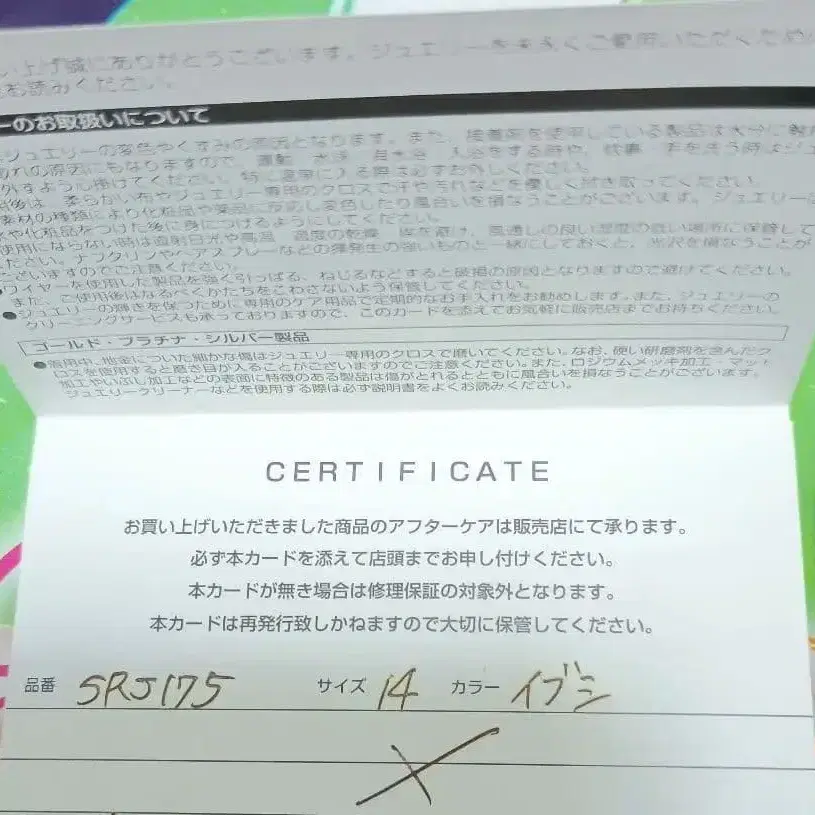 い上げ誠にありがとうございます。ジュエリーを末永くご愛用いただくため
お読みください。
ーのお取扱いについて
ジュエリーの変色やくすみの原因となります。また、接着剤を使用している製品は水分に
の原因にもなりますので、運動・水泳・海水浴・入浴をする時や、炊事・手を洗う時はジュ
外すよう心掛けてください。特に温泉に入る際は必ずお外しください。
後は、柔らかい布やジュエリー専用のクロスで汗や汚れなどを優しく拭き取ってください。
素材の種類により化粧品や薬品に反応し変色したり風合いを損なうことがございます。ジュエリー
や化粧品をつけた後に身につけるようにしてください。
使用にならない時は直射日光や高温・過度の乾燥・埃を避け、風通しの良い湿度の低い場所に保管して
ださい。ナフタリンやヘアスプレーなどの揮発性の強いものと一緒にしておくと、光沢を損なうことが
ございますのでご注意ください。
●ワイヤーを使用した製品を強く引っぱる、ねじるなどすると破損の原因となりますので避けてください。
また、ご使用後はなるべくかたちをこわさないよう保管してください。
●ジュエリーの輝きを保つために専用のケア用品で定期的なお手入れをお勧めします。また、ジュエリーの
クリーニングサービスも承っておりますので、このカードを添えてお気軽に販売店までお持ちください。
ゴールド・プラチナ・シルバー製品
●着用中、地金についた細かな傷はジュエリー専用のクロスで磨いてください。なお、硬い研磨剤を含んだク
ロスを使用すると磨き目が入ることがございますのでご注意ください。また、ロジウムメッキ加工・マット
加工やいぶし加工などの表面に特徴のある製品は傷がとれるとともに風合いを損なうことがございます。
ジュエリークリーナーなどを使用する際は必ず説明書をよくお読みください。
CERTIFICATE
お買い上げいただきました商品のアフターケアは販売店にて承ります。
必ず本カードを添えて店頭までお申し付けください。
本カードが無き場合は修理保証の対象外となります。
本カードは再発行致しかねますので大切に保管してください。
品番 SRJ175 サイズ 14 カラー イブシ